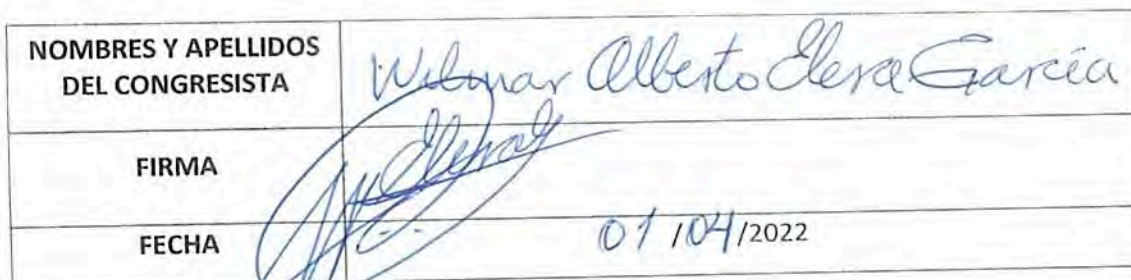 NOMBRES Y APELLIDOS
DEL CONGRESISTA
Wilmar Alberto Elera García
FIRMA
Elera G
FECHA
01/04/2022